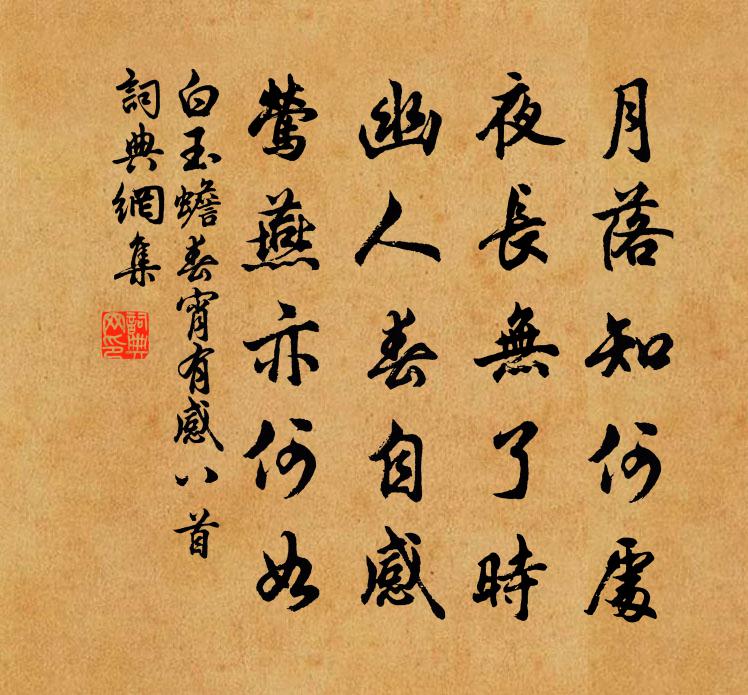 月落知何處
夜長無了時
幽人春自感
鶯燕亦何如
白玉蟾春宵有感八首
詞典網集
詞典網印